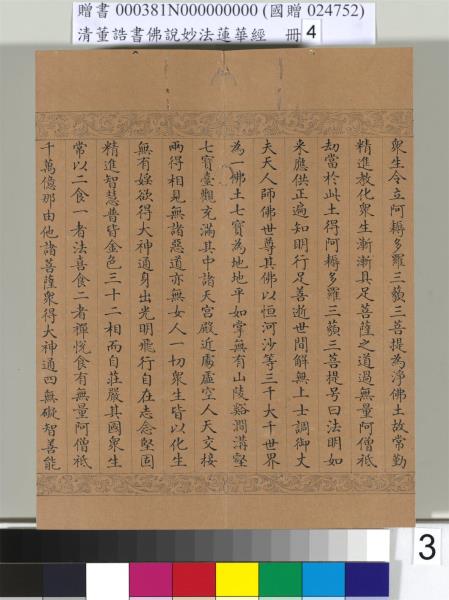 贈書 000381N000000000 (國贈 024752)
清董誥書佛說妙法蓮華經 冊 4
衆生令立阿耨多羅三藐三菩提為淨佛土故常勤
精進教化衆生漸漸具足菩薩之道過無量阿僧祇
劫當於此土得阿耨多羅三藐三菩提号曰法明如
来應供正遍知明行足善逝世間解無上士調御丈
夫天人師佛世尊其佛以恒河沙等三千大千世界
為一佛土七寶為地地平如掌無有山陵谿澗溝壑
七寶臺觀充滿其中諸天宮殿近處虛空人天交接
兩得相見無諸惡道亦無女人一切衆生皆以化生
無有婬欲得大神通身出光明飛行自在志念堅固
精進智慧普皆金色三十二相而自莊嚴其國衆生
常以二食一者法喜食二者禪悅食有無量阿僧祇
千萬億那由他諸菩薩衆得大神通四無礙智善能
3